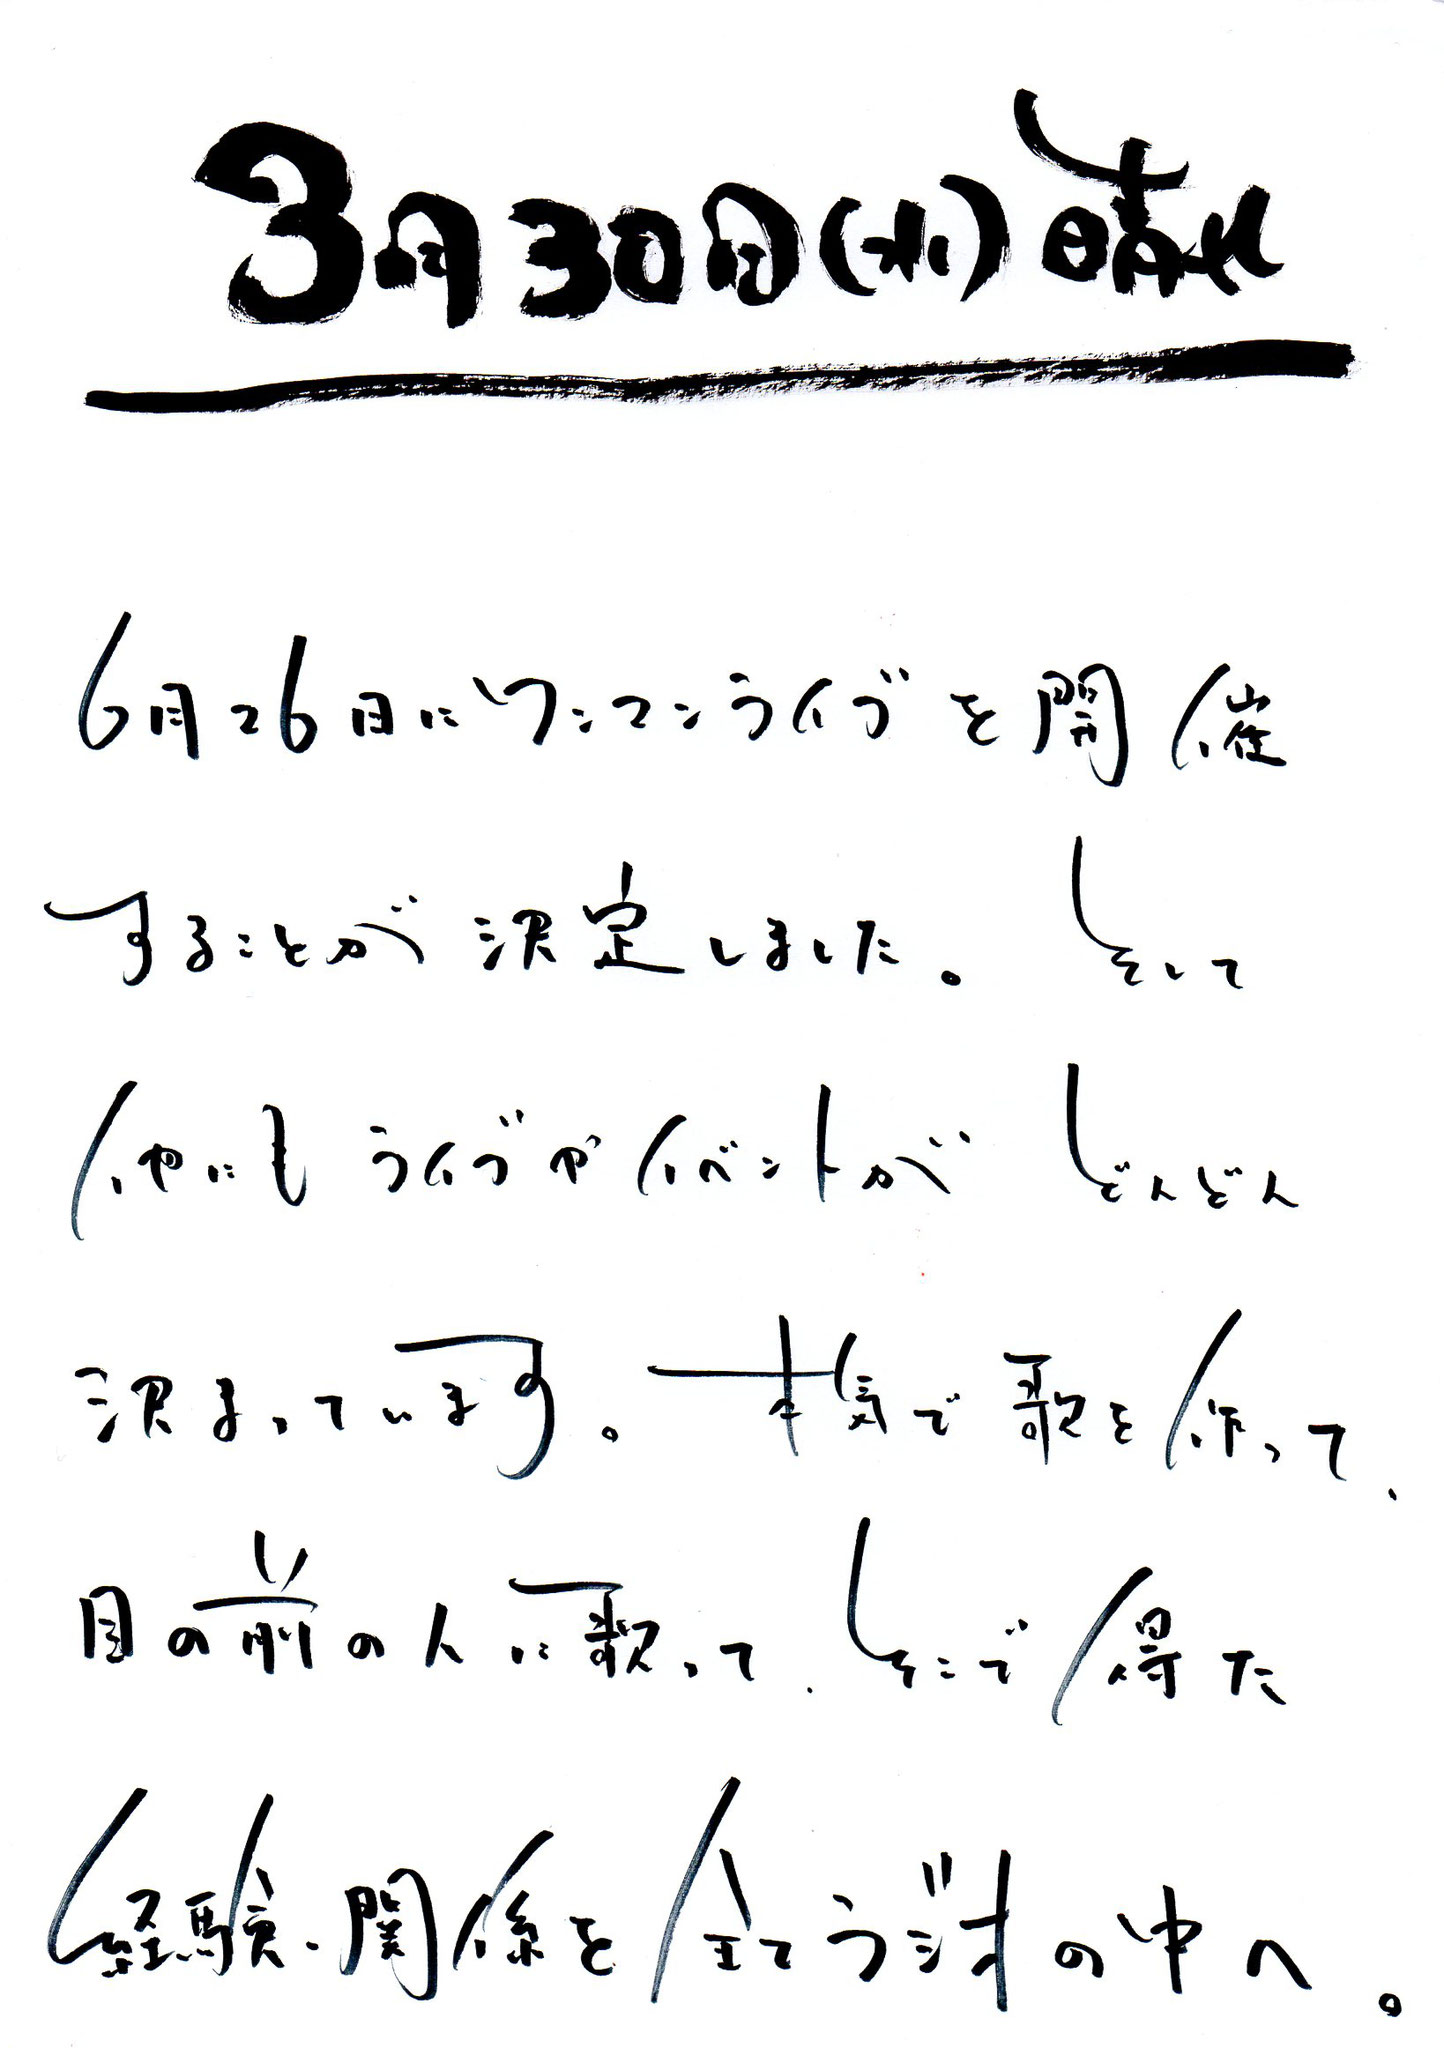 3月30日(水)晴れ
6月26日にワンマンライブを開催
することが決定しました。そして
他にもライブやイベントがどんどん
決まっています。本気で歌を作って、
目の前の人に歌って、そこで得た
経験・関係を全てラジオの中へ。